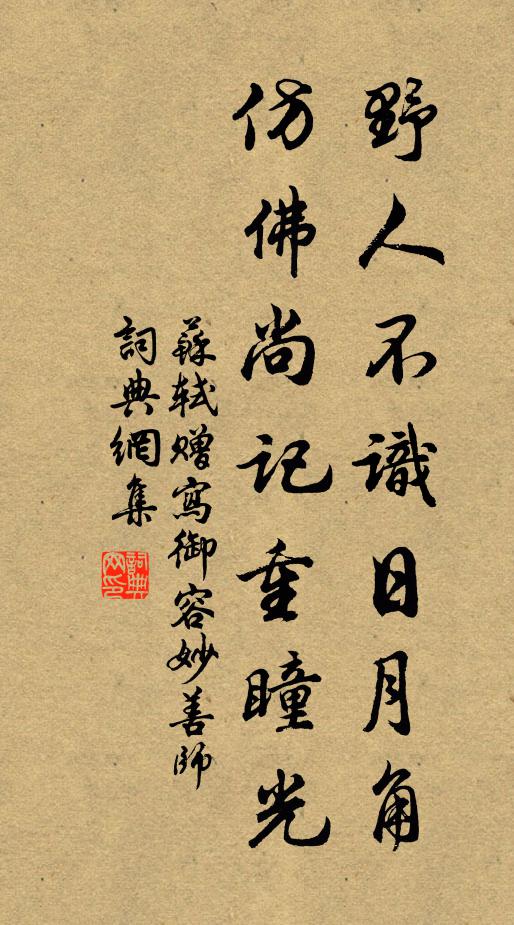 野人不識日月角
仿佛尚記重瞳光
蘇軾贈寫御容妙善師
詞典網集
詞典網印